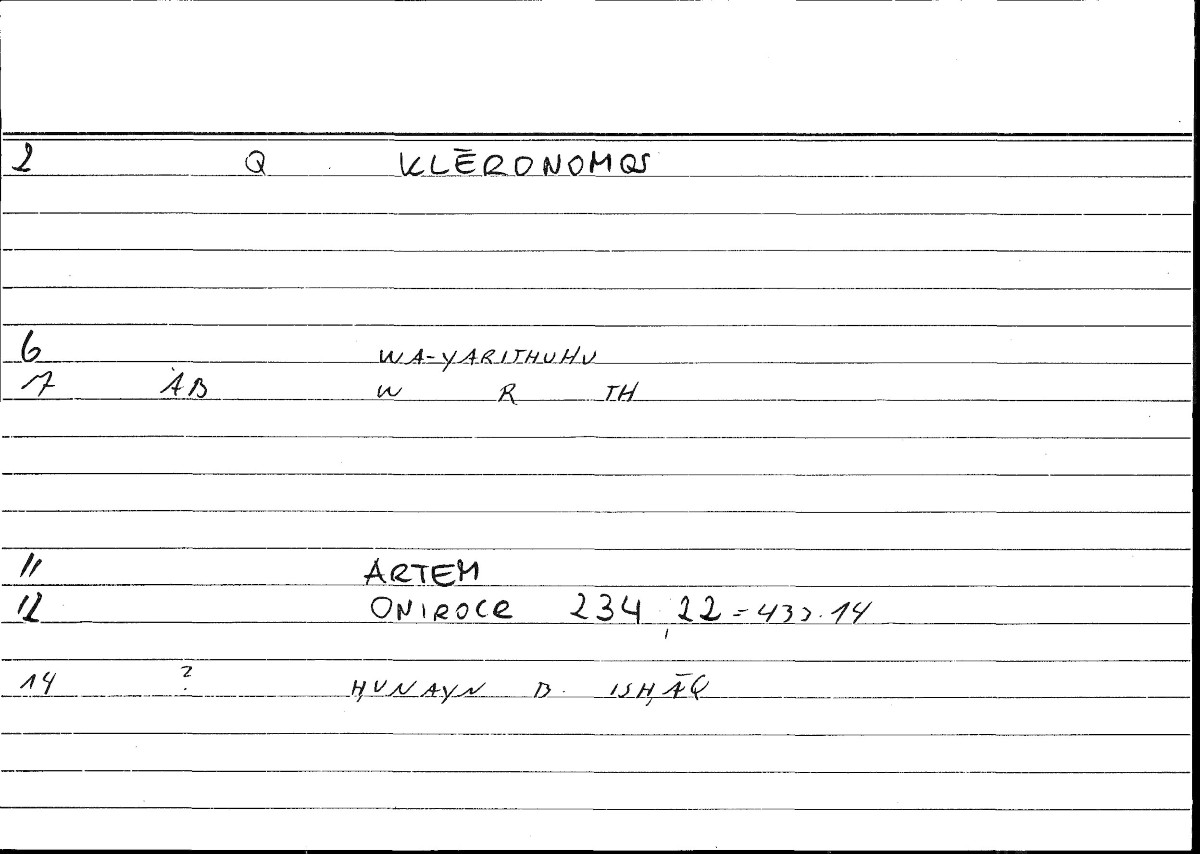 2 Q KLĒRONOMOS
6 WA-YARITHUHU
7 AB W R TH
11 ARTEM
12 ONIROCR 234,22 = 433.14
14 ? ḤUNAYN B. ISḤĀQ